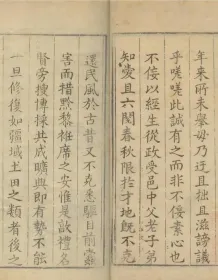 年来所未舉毋乃迂且拙且滋謗議
乎嗟嗟此誠有之而非不佞素心也
不佞以經生從政受邑中父老子弟
知愛且六閱春秋限於才地既不克
還民風於古昔又不克悉驅目前蠹
害而措黔黎袵席之安惟是敦禮名
賢旁搜博採共成曠典即有勢不能
一旦修復如疆域土田之類者後之